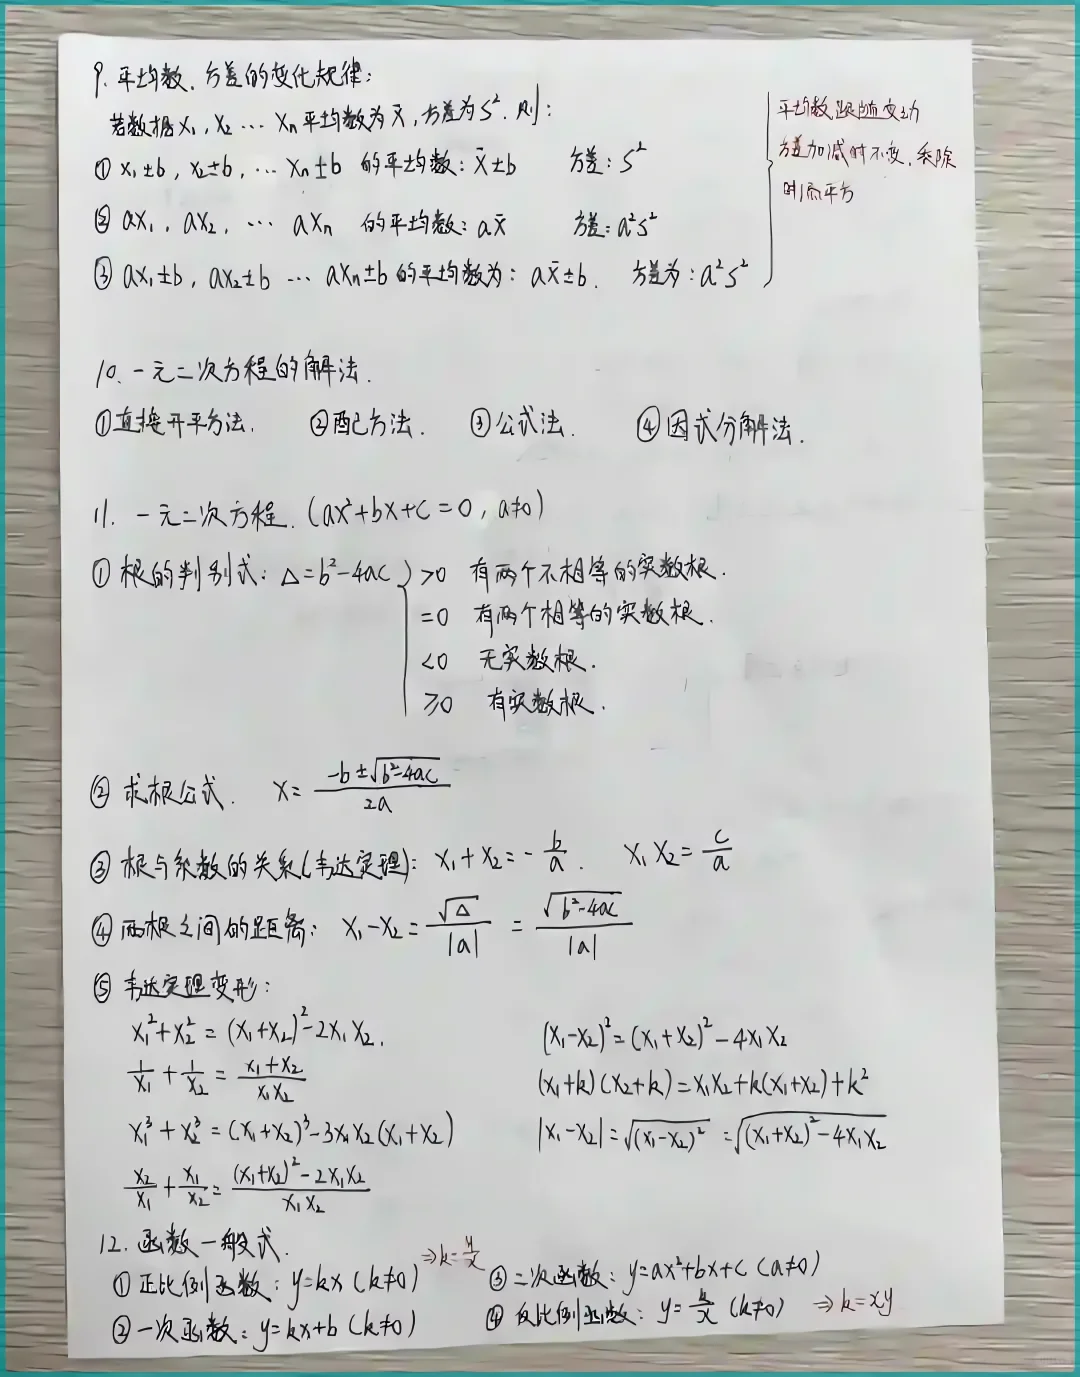 9. 平均数、方差的变化规律:
若数据x₁, x₂ … xₙ平均数为x̄, 方差为s². 则:
① x₁±b, x₂±b, … xₙ±b 的平均数: x̄±b 方差: s²
② ax₁, ax₂, … axₙ 的平均数: ax̄ 方差: a²s²
③ ax₁±b, ax₂±b … axₙ±b的平均数为: ax̄±b. 方差为: a²s²
平均数跟随变动
方差加减时不变, 乘除
时a平方
10. 一元二次方程的解法.
①直接开平方法. ②配方法. ③公式法. ④因式分解法.
11. 一元二次方程. (ax²+bx+c=0, a≠0)
① 根的判别式: Δ=b²-4ac >0 有两个不相等的实数根.
=0 有两个相等的实数根.
<0 无实数根.
≥0 有实数根.
② 求根公式. x=(-b±√(b²-4ac))/(2a)
③ 根与系数的关系(韦达定理): x₁+x₂=-b/a. x₁x₂=c/a
④ 两根之间的距离: x₁-x₂=√Δ/|a| = √(b²-4ac)/|a|
⑤ 韦达定理变形:
x₁²+x₂²=(x₁+x₂)²-2x₁x₂. (x₁-x₂)²=(x₁+x₂)²-4x₁x₂
1/x₁+1/x₂=(x₁+x₂)/(x₁x₂) (x₁+k)(x₂+k)=x₁x₂+k(x₁+x₂)+k²
x₁³+x₂³=(x₁+x₂)³-3x₁x₂(x₁+x₂) |x₁-x₂|=√((x₁-x₂)²) =√((x₁+x₂)²-4x₁x₂)
x₂/x₁+x₁/x₂=((x₁+x₂)²-2x₁x₂)/(x₁x₂)
12. 函数一般式.
① 正比例函数: y=kx (k≠0) ⇒k=y/x ③ 二次函数: y=ax²+bx+c (a≠0)
② 一次函数: y=kx+b (k≠0) ④ 反比例函数: y=k/x (k≠0) ⇒k=xy